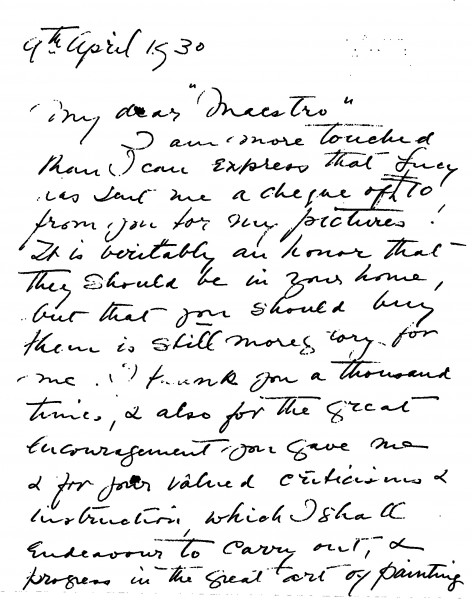 9th April 1930
My dear "Maestro"
I am more touched
than I can express that Lucy
has sent me a cheque of £10,
from you for my pictures!
It is veritably an honor that
they should be in your home,
but that you should buy
them is still more glory for
me. I thank you a thousand
times, & also for the great
encouragement you gave me
& for your valued criticisms &
instruction, which I shall
endeavour to carry out, &
progress in the great art of painting